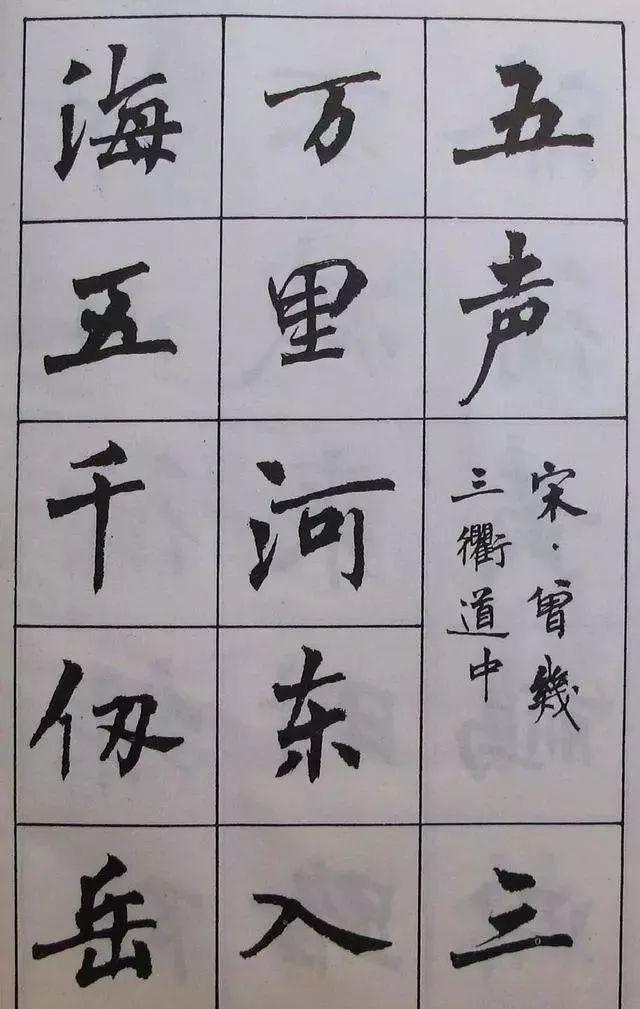 五声
宋·曾幾
三衢道中
三
万里河东入
海五千仞岳